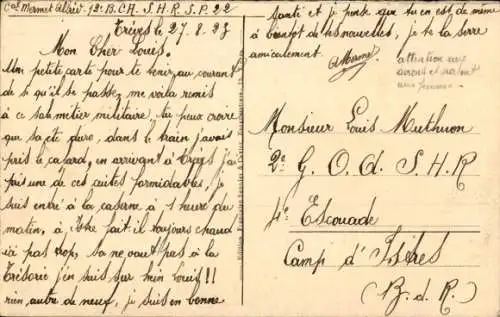 Cal Mermet Alfred. 12e B.CH. S.H.R. S.P. 22
Trèves le 27.8.23
Mon Cher Louis.
Une petite carte pour te tenir au courant
de si qu'il se passe, me voila remis
à ce sale métier militaire, tu peux croire
que sa été dure, dans le train j'avais
pris le cafard, en arrivant à Trèves j'ai
pris une de ces cuites formidables, je
suis entré à la caserne à 1 heure du
matin, à fait il toujours chaud
ici pas trop, sa ne vaut pas à la
j'en suis sur mon Louis!!
rien autre de neuf, je suis en bonne
santé et je pense que tu en est de même
à bientôt de tes nouvelles, je te la serre
amicalement. AMermet
attention aux
Monsieur Louis Muthuon
2e G. O. d. S. H. R
4e Escouade
Camp d'
(B. d. R.)